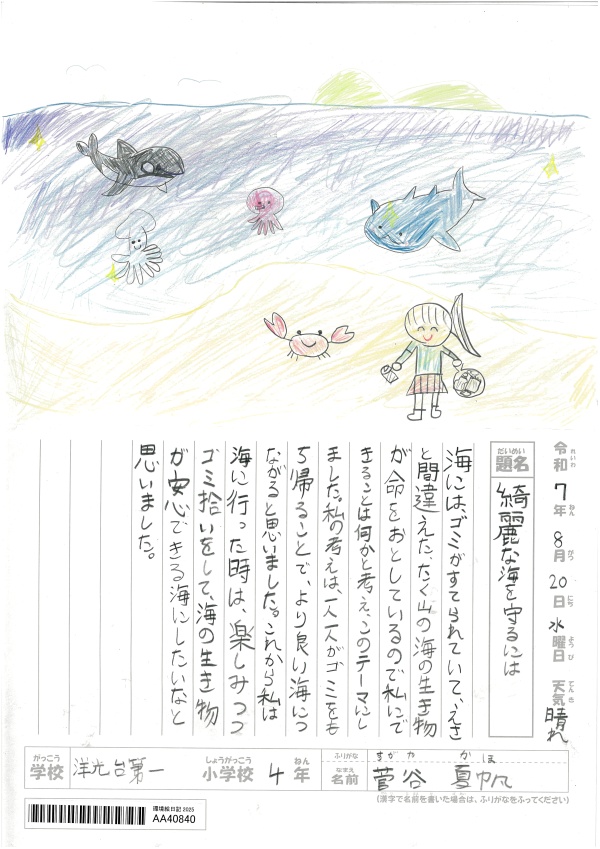 令和7年8月20日水曜日 天気晴れ
れいわ ねん がつ にち ようび てんき
だいめい
題名 綺麗な海を守るには
海には、ゴミがすてられていて、えさ
と間違えた、たく山の海の生き物
が命をおとしているので私にで
きることは何かと考え、このテーマにし
ました。私の考えは、一人一人がゴミをも
ち帰ることで、より良い海につ
ながると思いました。これから私は
海に行った時は、楽しみつつ
ゴミ拾いをして、海の生き物
が安心できる海にしたいなと
思いました。
がっこう しょうがっこう ねん ふりがな すがや かほ
学校 洋光台第一 小学校 4年 なまえ 名前 菅谷 夏帆
(漢字で名前を書いた場合は、ふりがなをふってください)
環境絵日記 2025
AA40840